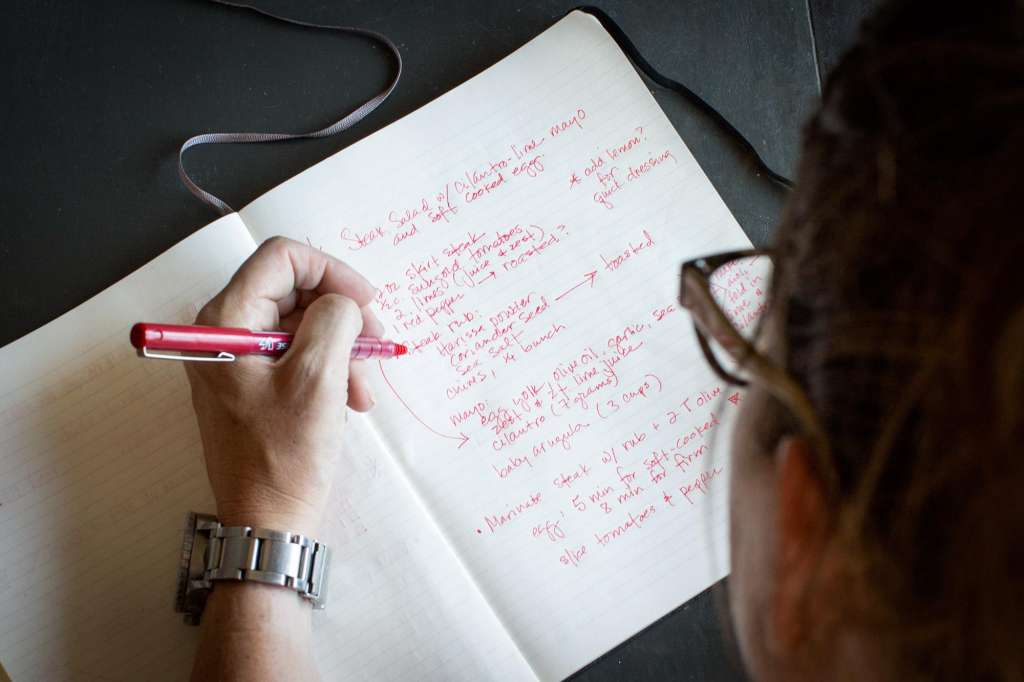 Steak Salad w/ Cilantro-lime-mayo
and soft cooked egg
* add lemon?
for
quick dressing
oz skirt steak
sungold tomatoes
2 limes (juice + zest)
1 red pepper → roasted?
Steak rub:
Harissa powder
coriander seed → toasted
sea salt
chives, 1/4 bunch
mayo:
egg yolk, olive oil, garlic, sea
zest + lime juice
cilantro (7 grams)
baby arugula (3 cups)
• Marinate steak w/ rub + 2 T olive
egg, 5 min for soft-cooked
8 min for firm
slice tomatoes + pepper